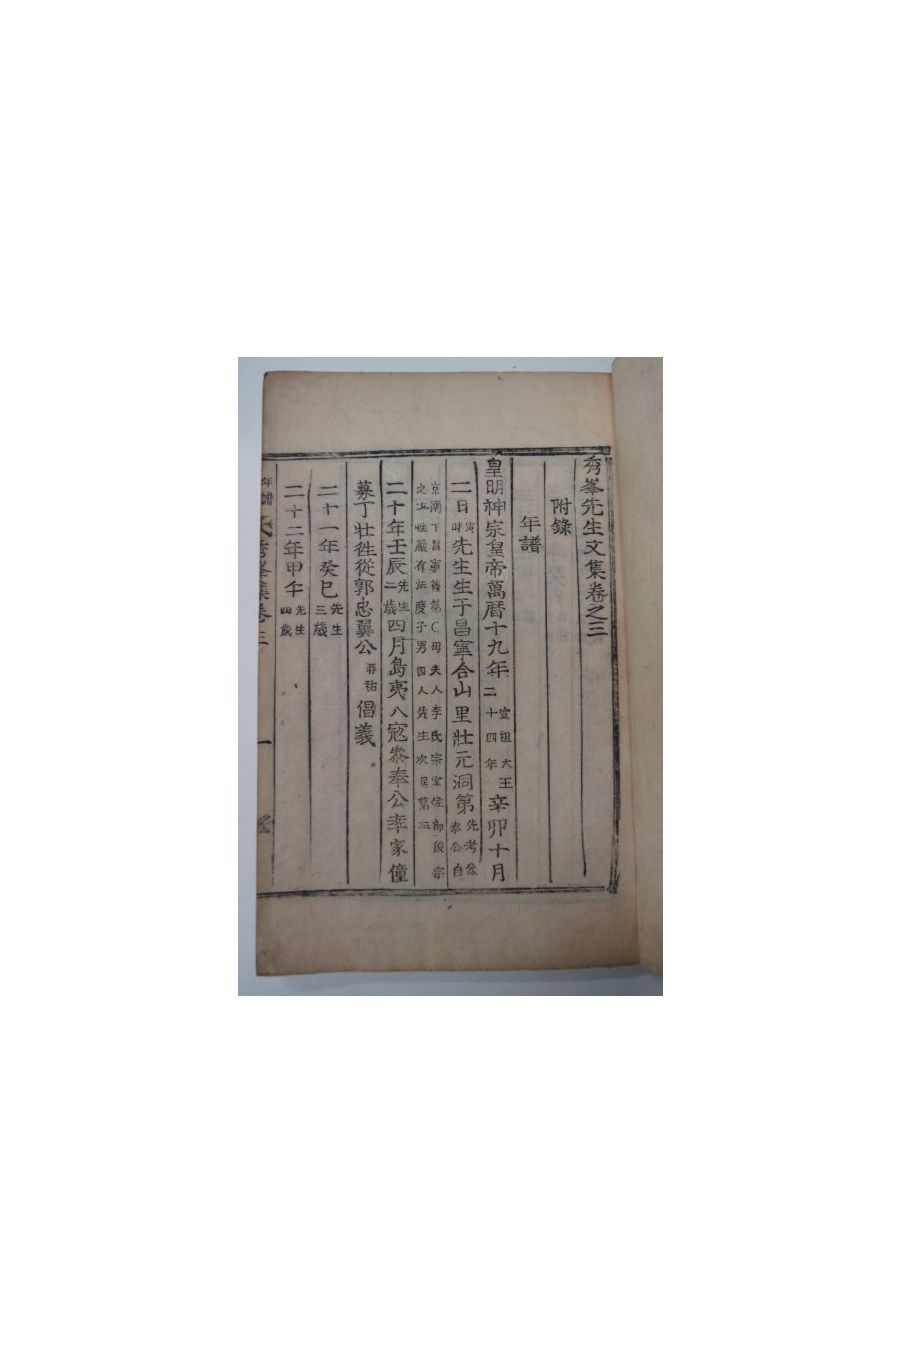 秀峯先生文集卷之三
附錄
年譜
皇明神宗皇帝萬曆十九年宣祖大王二十四年辛卯十月
二日寅時先生生于昌寧合山里壯元洞第先考參奉公自
京南下昌寧舊第○母夫人李氏宗室佐郞俊宗之女性嚴有法度子男四人先生次居第三
二十年壬辰先生二歲四月島夷入寇參奉公率家僮
募丁壯徃從郭忠翼公再祐倡義
二十一年癸巳先生三歲
二十二年甲午先生四歲
年譜 秀峯集卷三 一